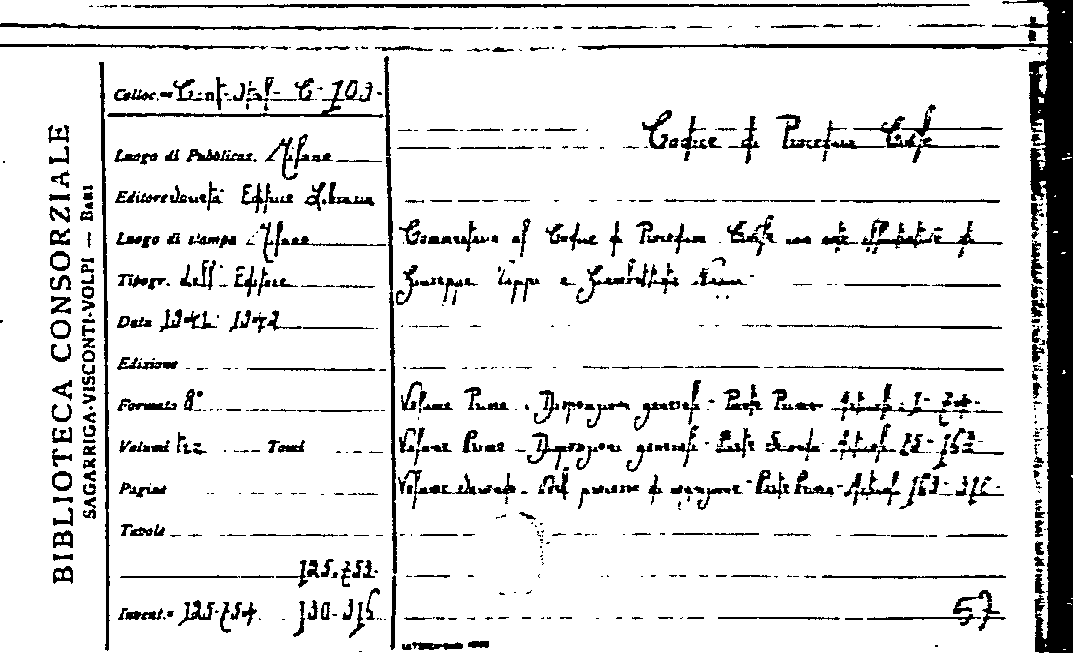 BIBLIOTECA CONSORZIALE
SAGARRIGA-VISCONTI-VOLPI — BARI
Colloc.= Cont. C-703-
Luogo di Pubblicaz. Milano
Editore Editrice Libraria
Luogo di stampa Milano
Tipogr. dell' Editore
Data 1941-1942
Edizione
Formato 8°
Volumi tre Tomi
Pagine
Tavole
125.753-
Invent.= 125-754 130-315
Codice di Procedura Civile
Commentario al Codice di Procedura Civile con di
Giuseppe Zappi e Giambattista
Volume Primo. Disposizioni generali - Parte Prima- Articoli 1-74-
Volume Primo- Disposizioni generali- Parte Seconda Articoli 75-162-
Volume Secondo- Del processo di cognizione- Parte Prima- Articoli 163-310-
57